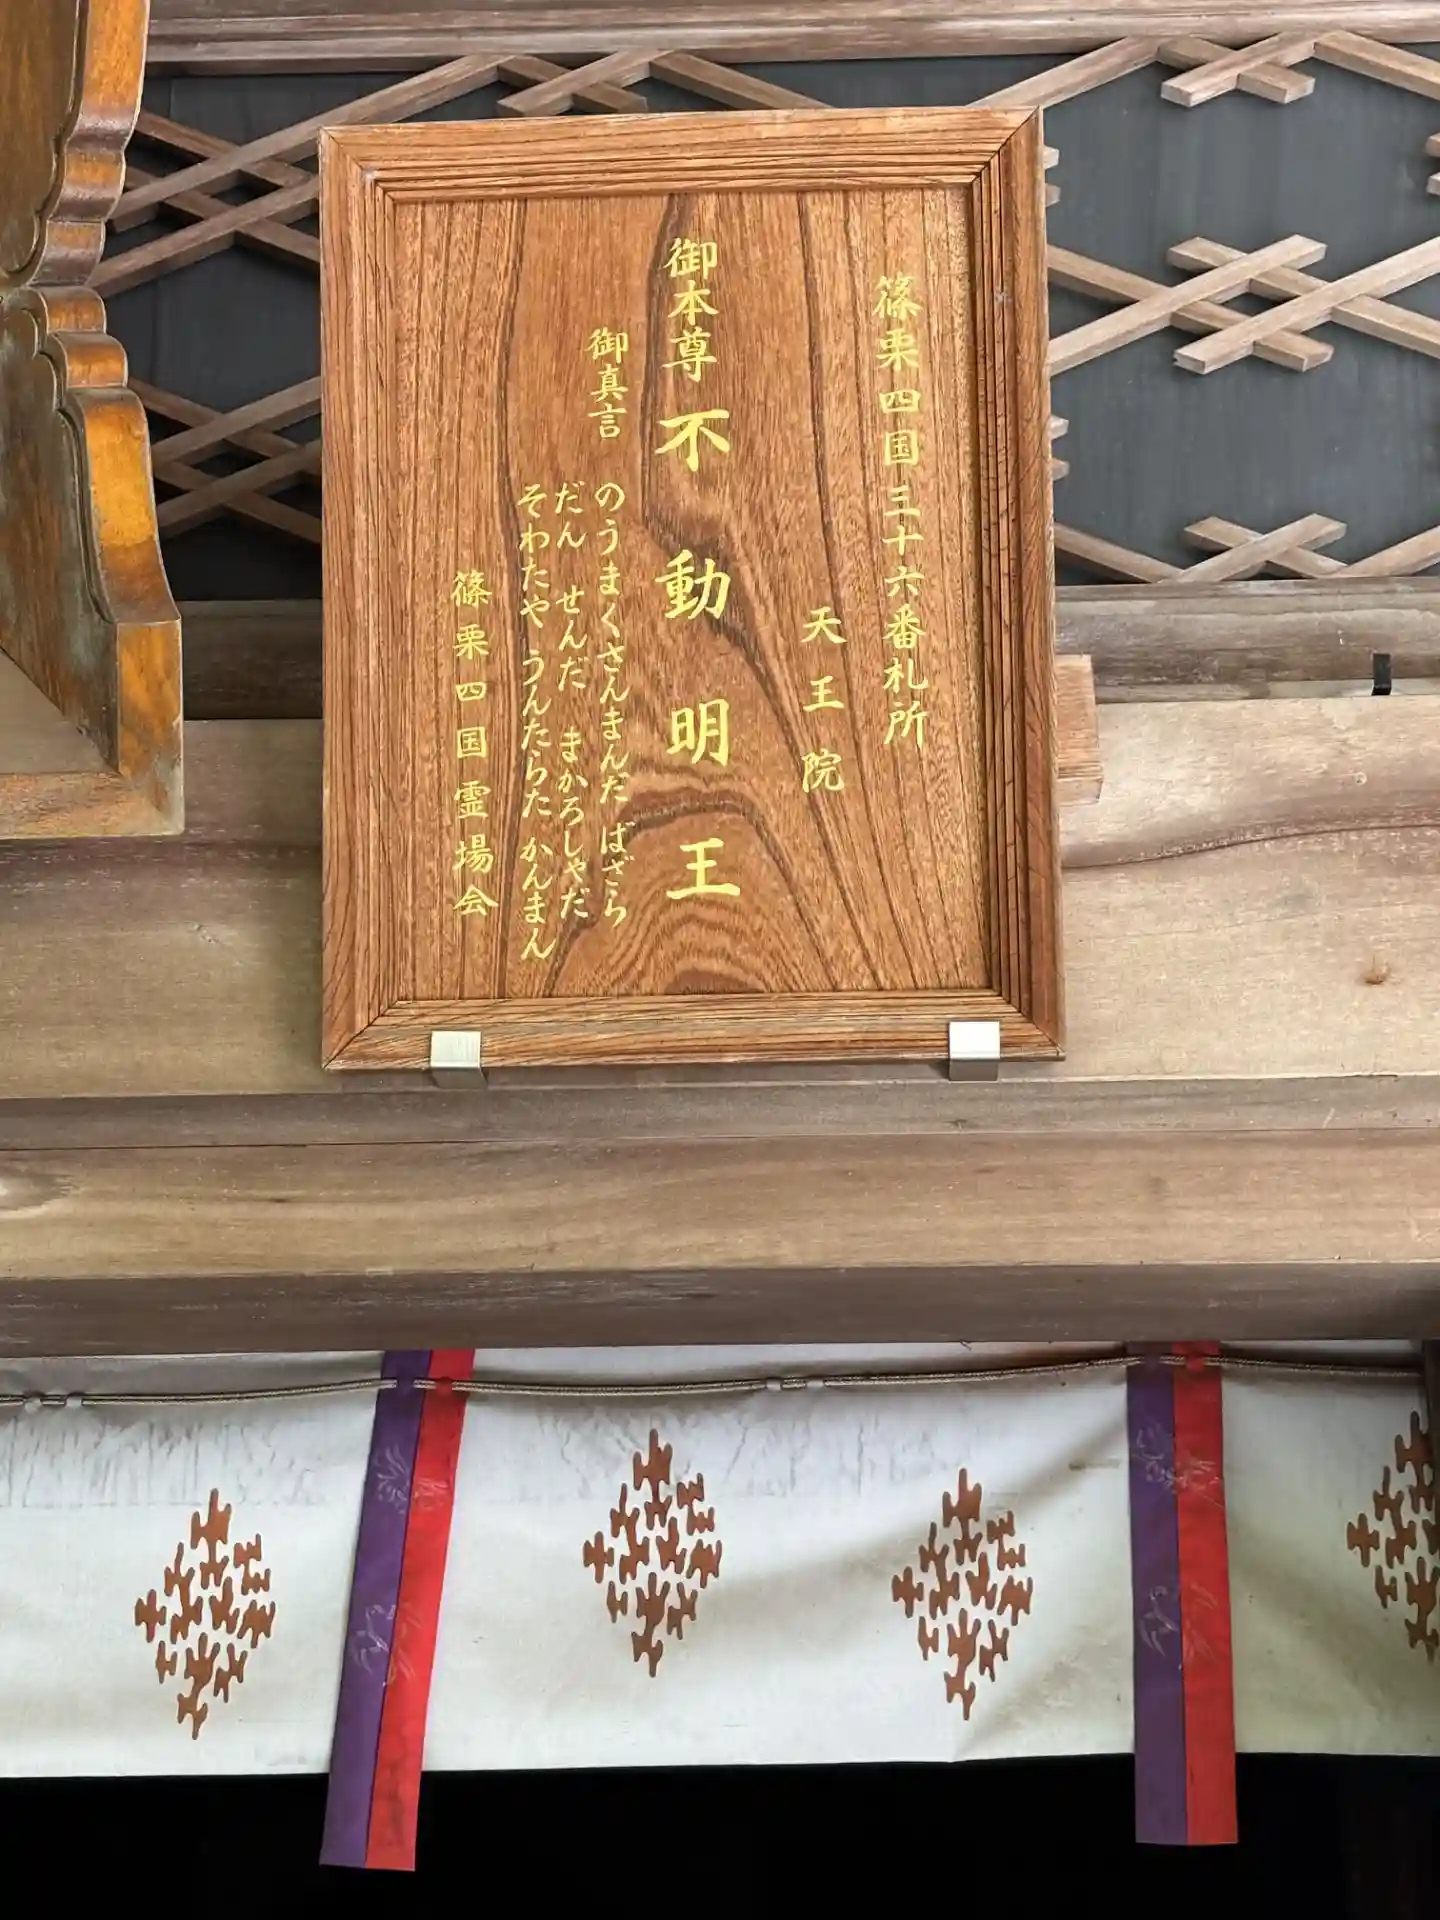 篠栗四国三十六番札所
天王院
御本尊 不動明王
御真言 のうまくさんまんだ ばざら
だん せんだ まかろしゃだ
そわたや うんたらた かんまん
篠栗四国霊場会